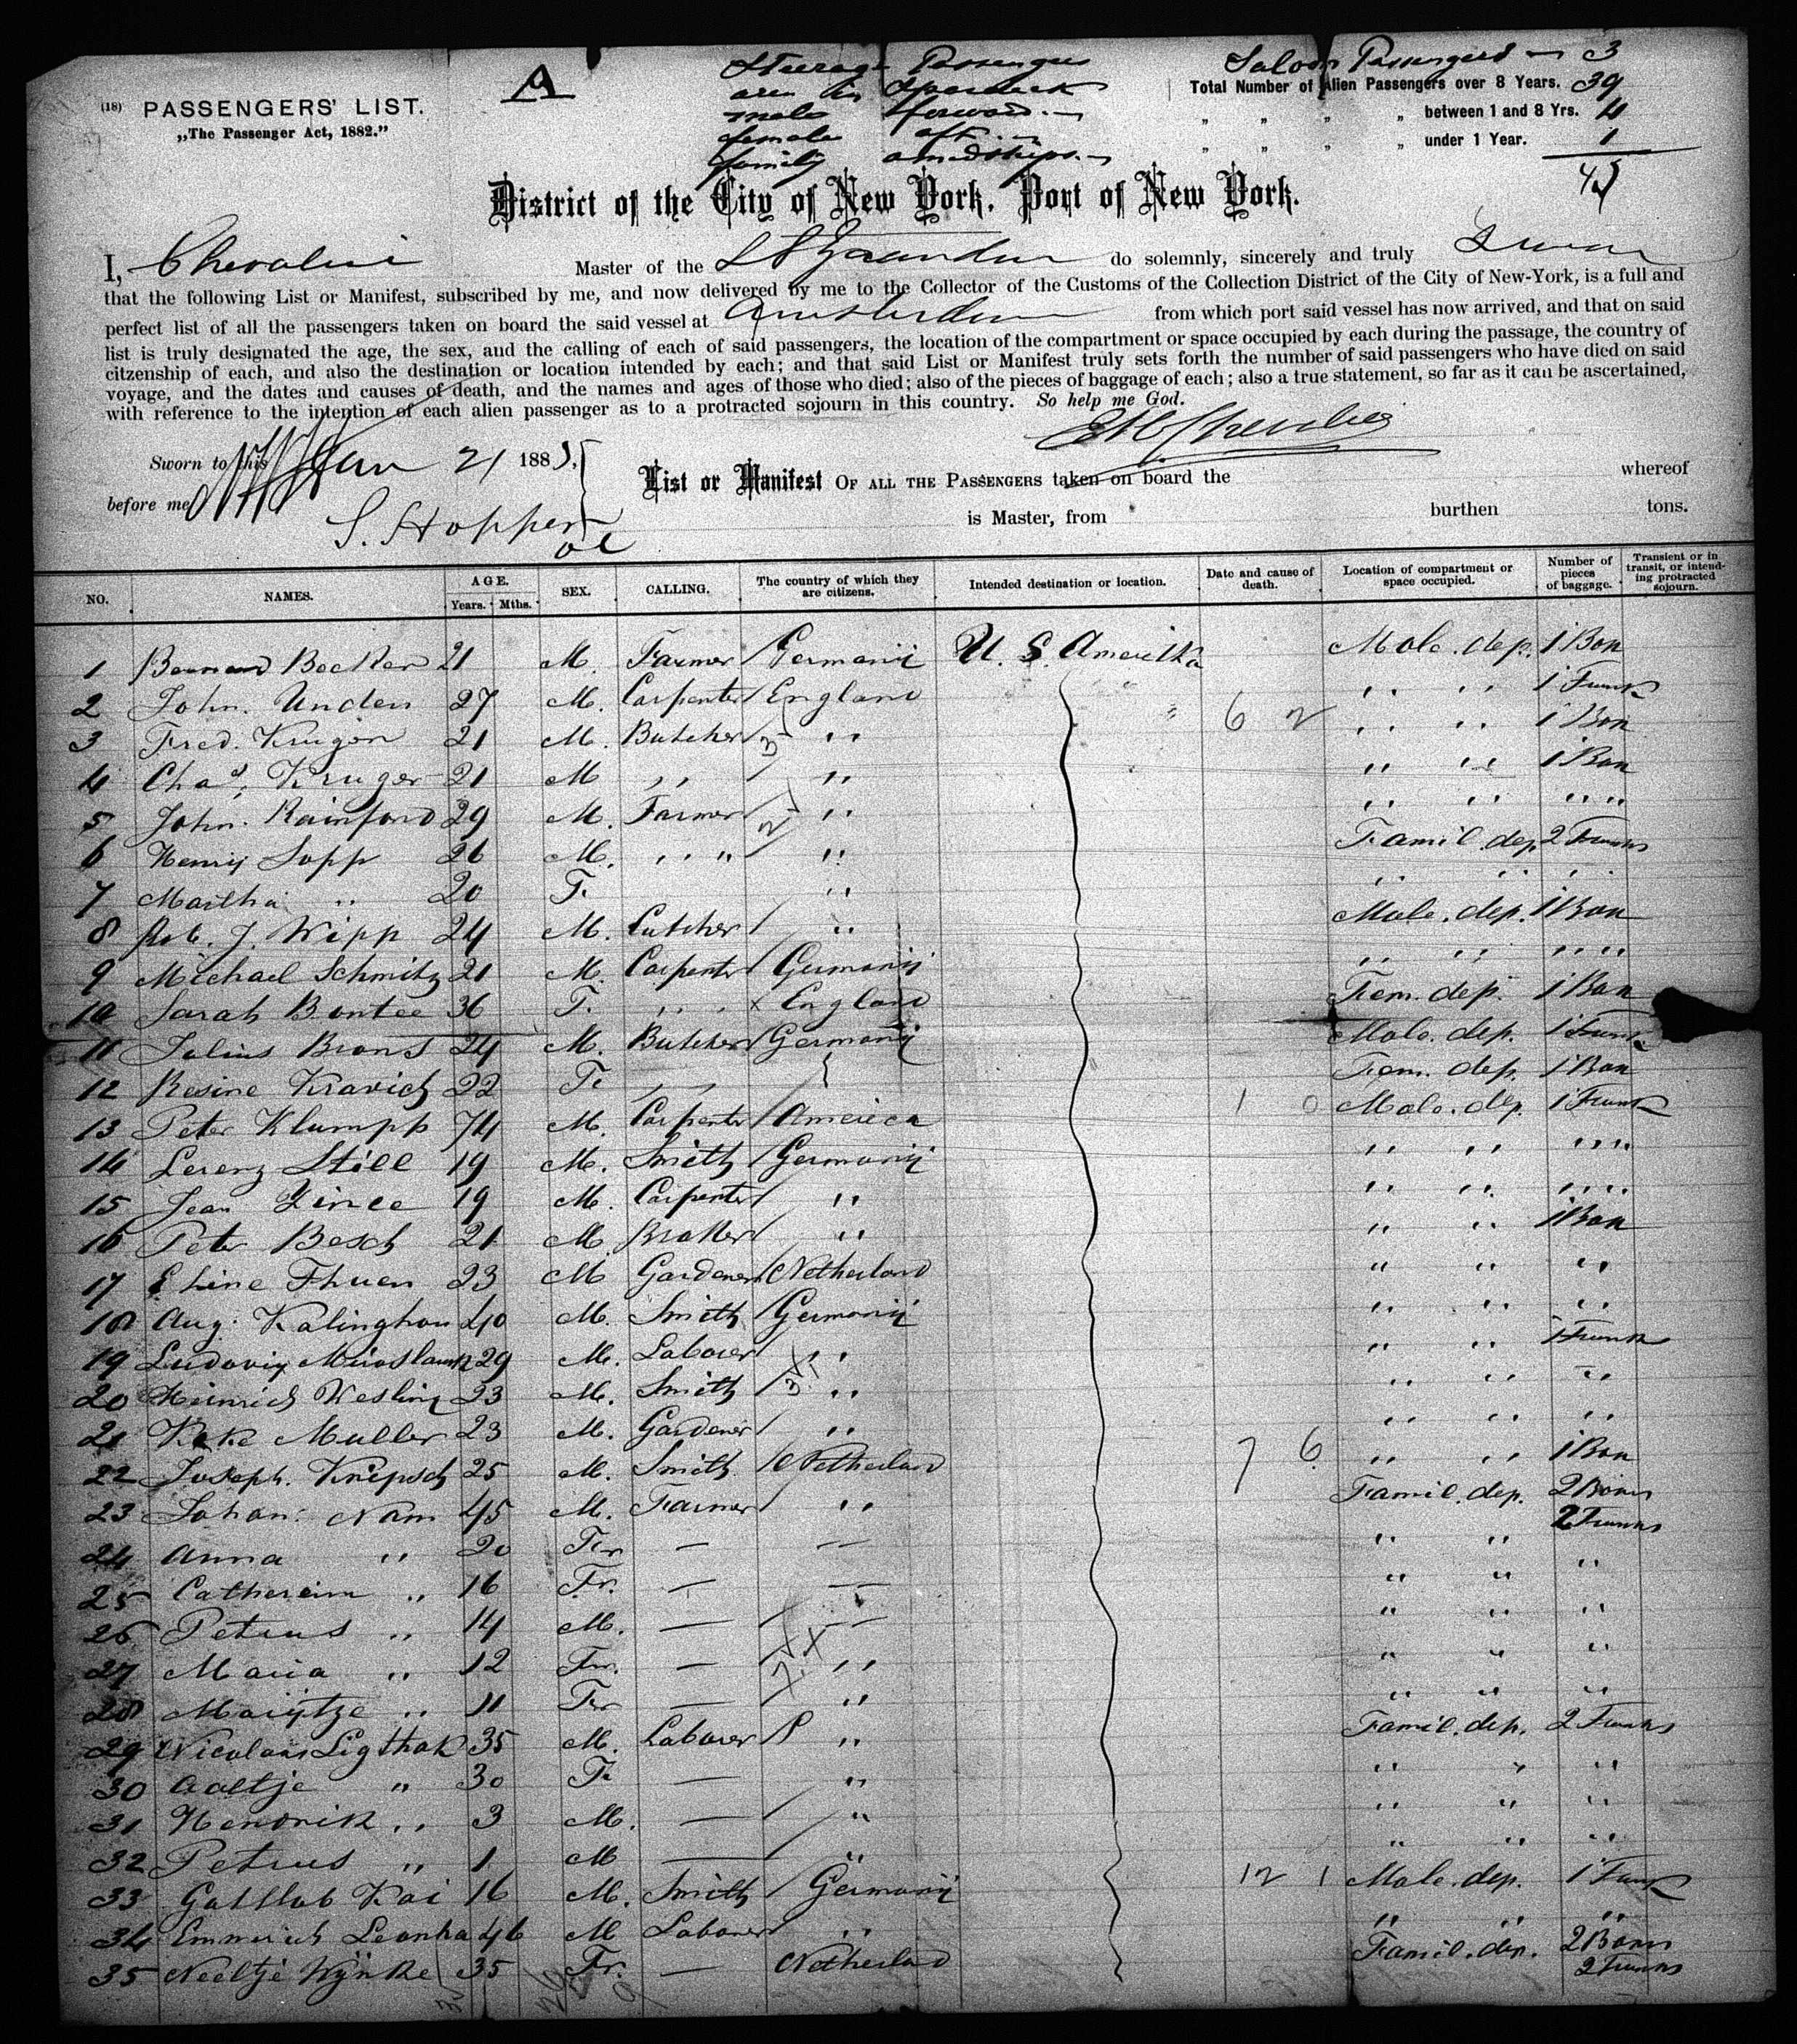 A
Steerage Passengers
are in Spardeck
male forward.—
female aft.—
family amidships.—
Saloon Passengers — 3
(18) PASSENGERS' LIST.
„The Passenger Act, 1882."
Total Number of Alien Passengers over 8 Years. 39
„ „ „ „ between 1 and 8 Yrs. 4
„ „ „ „ under 1 Year. 1
District of the City of New York, Port of New York.
I, Master of the do solemnly, sincerely and truly
that the following List or Manifest, subscribed by me, and now delivered by me to the Collector of the Customs of the Collection District of the City of New-York, is a full and
perfect list of all the passengers taken on board the said vessel at Amsterdam from which port said vessel has now arrived, and that on said
list is truly designated the age, the sex, and the calling of each of said passengers, the location of the compartment or space occupied by each during the passage, the country of
citzenship of each, and also the destination or location intended by each; and that said List or Manifest truly sets forth the number of said passengers who have died on said
voyage, and the dates and causes of death, and the names and ages of those who died; also of the pieces of baggage of each; also a true statement, so far as it can be ascertained,
with reference to the intention of each alien passenger as to a protracted sojourn in this country. So help me God.
Sworn to this Jan 21 188
before me
S. Hopper
List or Manifest OF ALL THE PASSENGERS taken on board the whereof
is Master, from burthen tons.
NO. NAMES. AGE. Years. Mths. SEX. CALLING. The country of which they are citizens. Intended destination or location. Date and cause of death. Location of compartment or space occupied. Number of pieces of baggage. Transient or in transit, or intending protracted sojourn.
1 Becker 21 M. Farmer Germanij U. S. Amerika Male. dep. 1 Box
2 John. Unden 27 M. Carpenter England „ „ 1 Trunk
3 Fred. Krugen 21 M. Butcher „ 6 2 „ „ 1 Box
4 Chas. Kruger 21 M „ „ „ „ 1 Box
5 John. Rainford 29 M. Farmer „ „ „ „
6 Henry Sopp 26 M. „ „ Famil. dep. 2 Trunks
7 Martha „ 20 F. „ „ „ „
8 Rob. J. Wipp 24 M. „ Male. dep. 1 Box
9 Michael Schmitz 21 M. Carpenter Germanij „ „ „
10 Sarah Bontee 36 F. „ England Fem. dep. 1 Box
11 Julius Brons 24 M. Butcher Germanij Male. dep. 1 Trunk
12 Rosine Kravich 22 F. Fem. dep. 1 Box
13 Peter Klumpp 74 M. Carpenter America 1 0 Male. dep. 1 Trunk
14 Lorenz Still 19 M. Smith Germanij „ „ „
15 Jean 19 M. Carpenter „ „ „ „
16 Peter Besch 21 M. „ „ „ 1 Box
17 Thuen 23 M Gardener Netherland „ „ „
18 Aug. Kalinghou 40 M. Smith Germanij „ „ „
19 29 M. Laborer „ „ „ 1 Trunk
20 Heinrich Wesling 23 M. Smith „ „ „ „
21 Muller 23 M. Gardener „ „ „ „
22 Joseph. Kniepsch 25 M. Smith Netherland 7 6 „ „ 1 Box
23 Johan. Nam 45 M. Farmer „ Famil. dep. 2 Boxes
2 Trunks
24 Anna „ 20 Fr — — „ „ „
25 Catherein „ 16 Fr. — — „ „ „
26 Petrus „ 14 M. — — „ „ „
27 Maria „ 12 Fr. — „ „ „ „
28 Marijtze „ 11 Fr — „ „ „ „
29 Nicolaas Ligthak 35 M. Laborer „ Famil. dep. 2 Trunks
30 Aaltje „ 30 F. — „ „ „ „
31 Hendrik „ 3 M. — „ „ „ „
32 Petrus „ 1 M — „ „ „ „
33 Gottlob Kai 16 M. Smith Germanij 12 1 Male. dep. 1 Trunk
34 Emmerich Leonha 46 M Laborer „ „ „ „
35 Neeltje Wijnke 35 Fr. — Netherland Famil. dep. 2 Boxes
2 Trunks